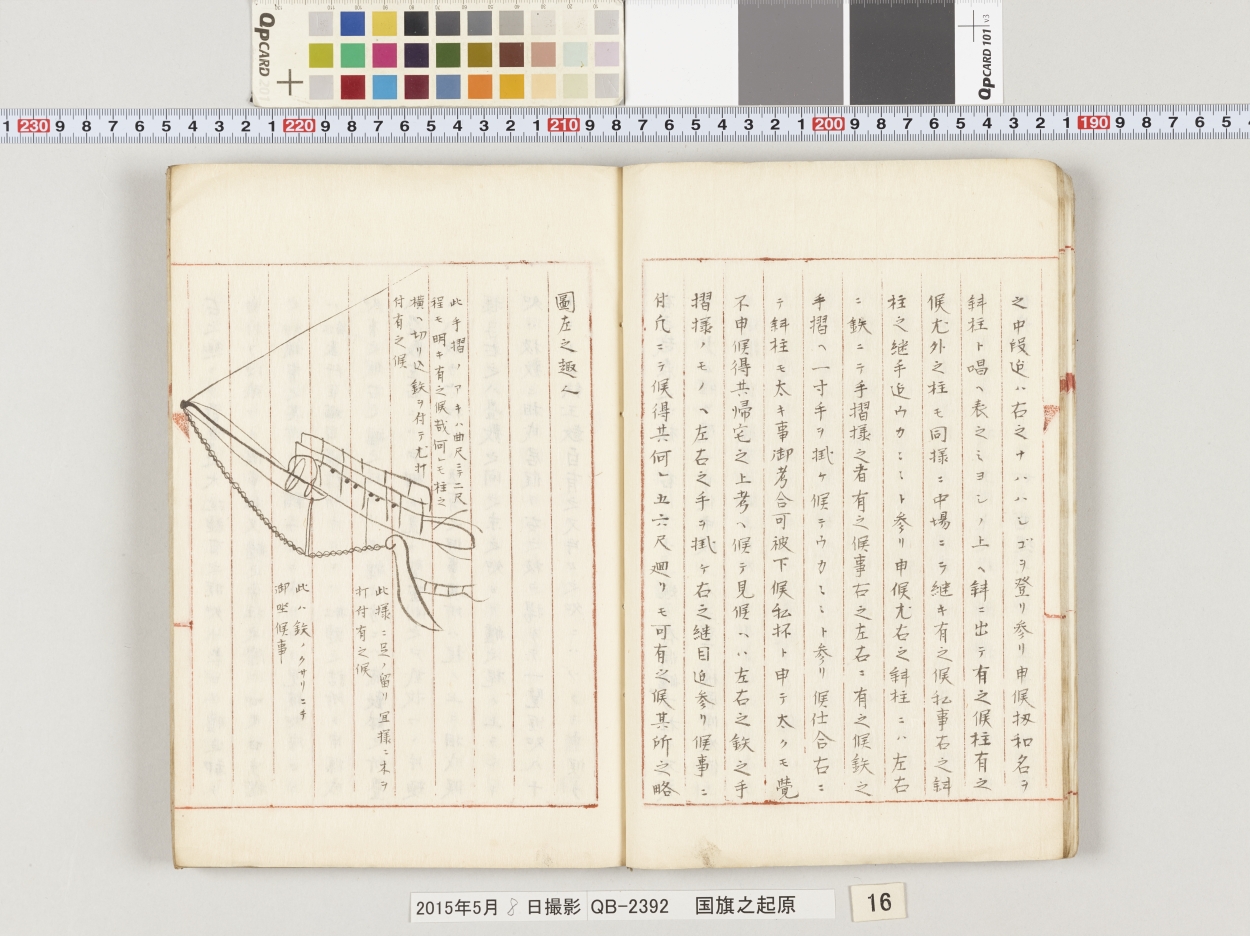 之中段迄ハ右之ナハハシゴヲ登リ参リ申候扨和名ヲ
斜柱ト唱ヘ表之ミヨシノ上ヘ斜ニ出テ有之候柱有之
候尤外之柱モ同様ニ中場ニテ継キ有之候私事右之斜
柱之継手迄ウカミミト参リ申候尤右之斜柱ニハ左右
ニ鉄ニテ手摺様之者有之候事右之左右ニ有之候鉄之
手摺ヘ一寸手ヲ掛ケ候テウカミミト参リ候仕合右ニ
テ斜柱モ太キ事御考合可被下候私抔ト申テ太クモ覚
不申候得共帰宅之上考ヘ候テ見候ハハ左右之鉄之手
摺様ノモノヘ左右之手ヲ掛ケ右之継目迄参リ候事ニ
付凡ニテ候得共何レ五六尺廻リモ可有之候其所之略
圖左之趣
此手摺ノアキハ曲尺ニテ二尺
程モ明キ有之候哉何レモ柱之
横ヘ切リ込鉄ヲ付テ尤打
付有之候
此様ニ足ノ留リ宜様ニネヲ
打付有之候
此ハ鉄ノクサリニテ
御坐候事
2015年5月8日撮影 QB-2392 国旗之起原
16
QPCARD 101 v3
QPCARD 201
1 230 9 8 7 6 5 4 3 2 1 220 9 8 7 6 5 4 3 2 1 210 9 8 7 6 5 4 3 2 1 200 9 8 7 6 5 4 3 2 1 190 9 8 7 6 5